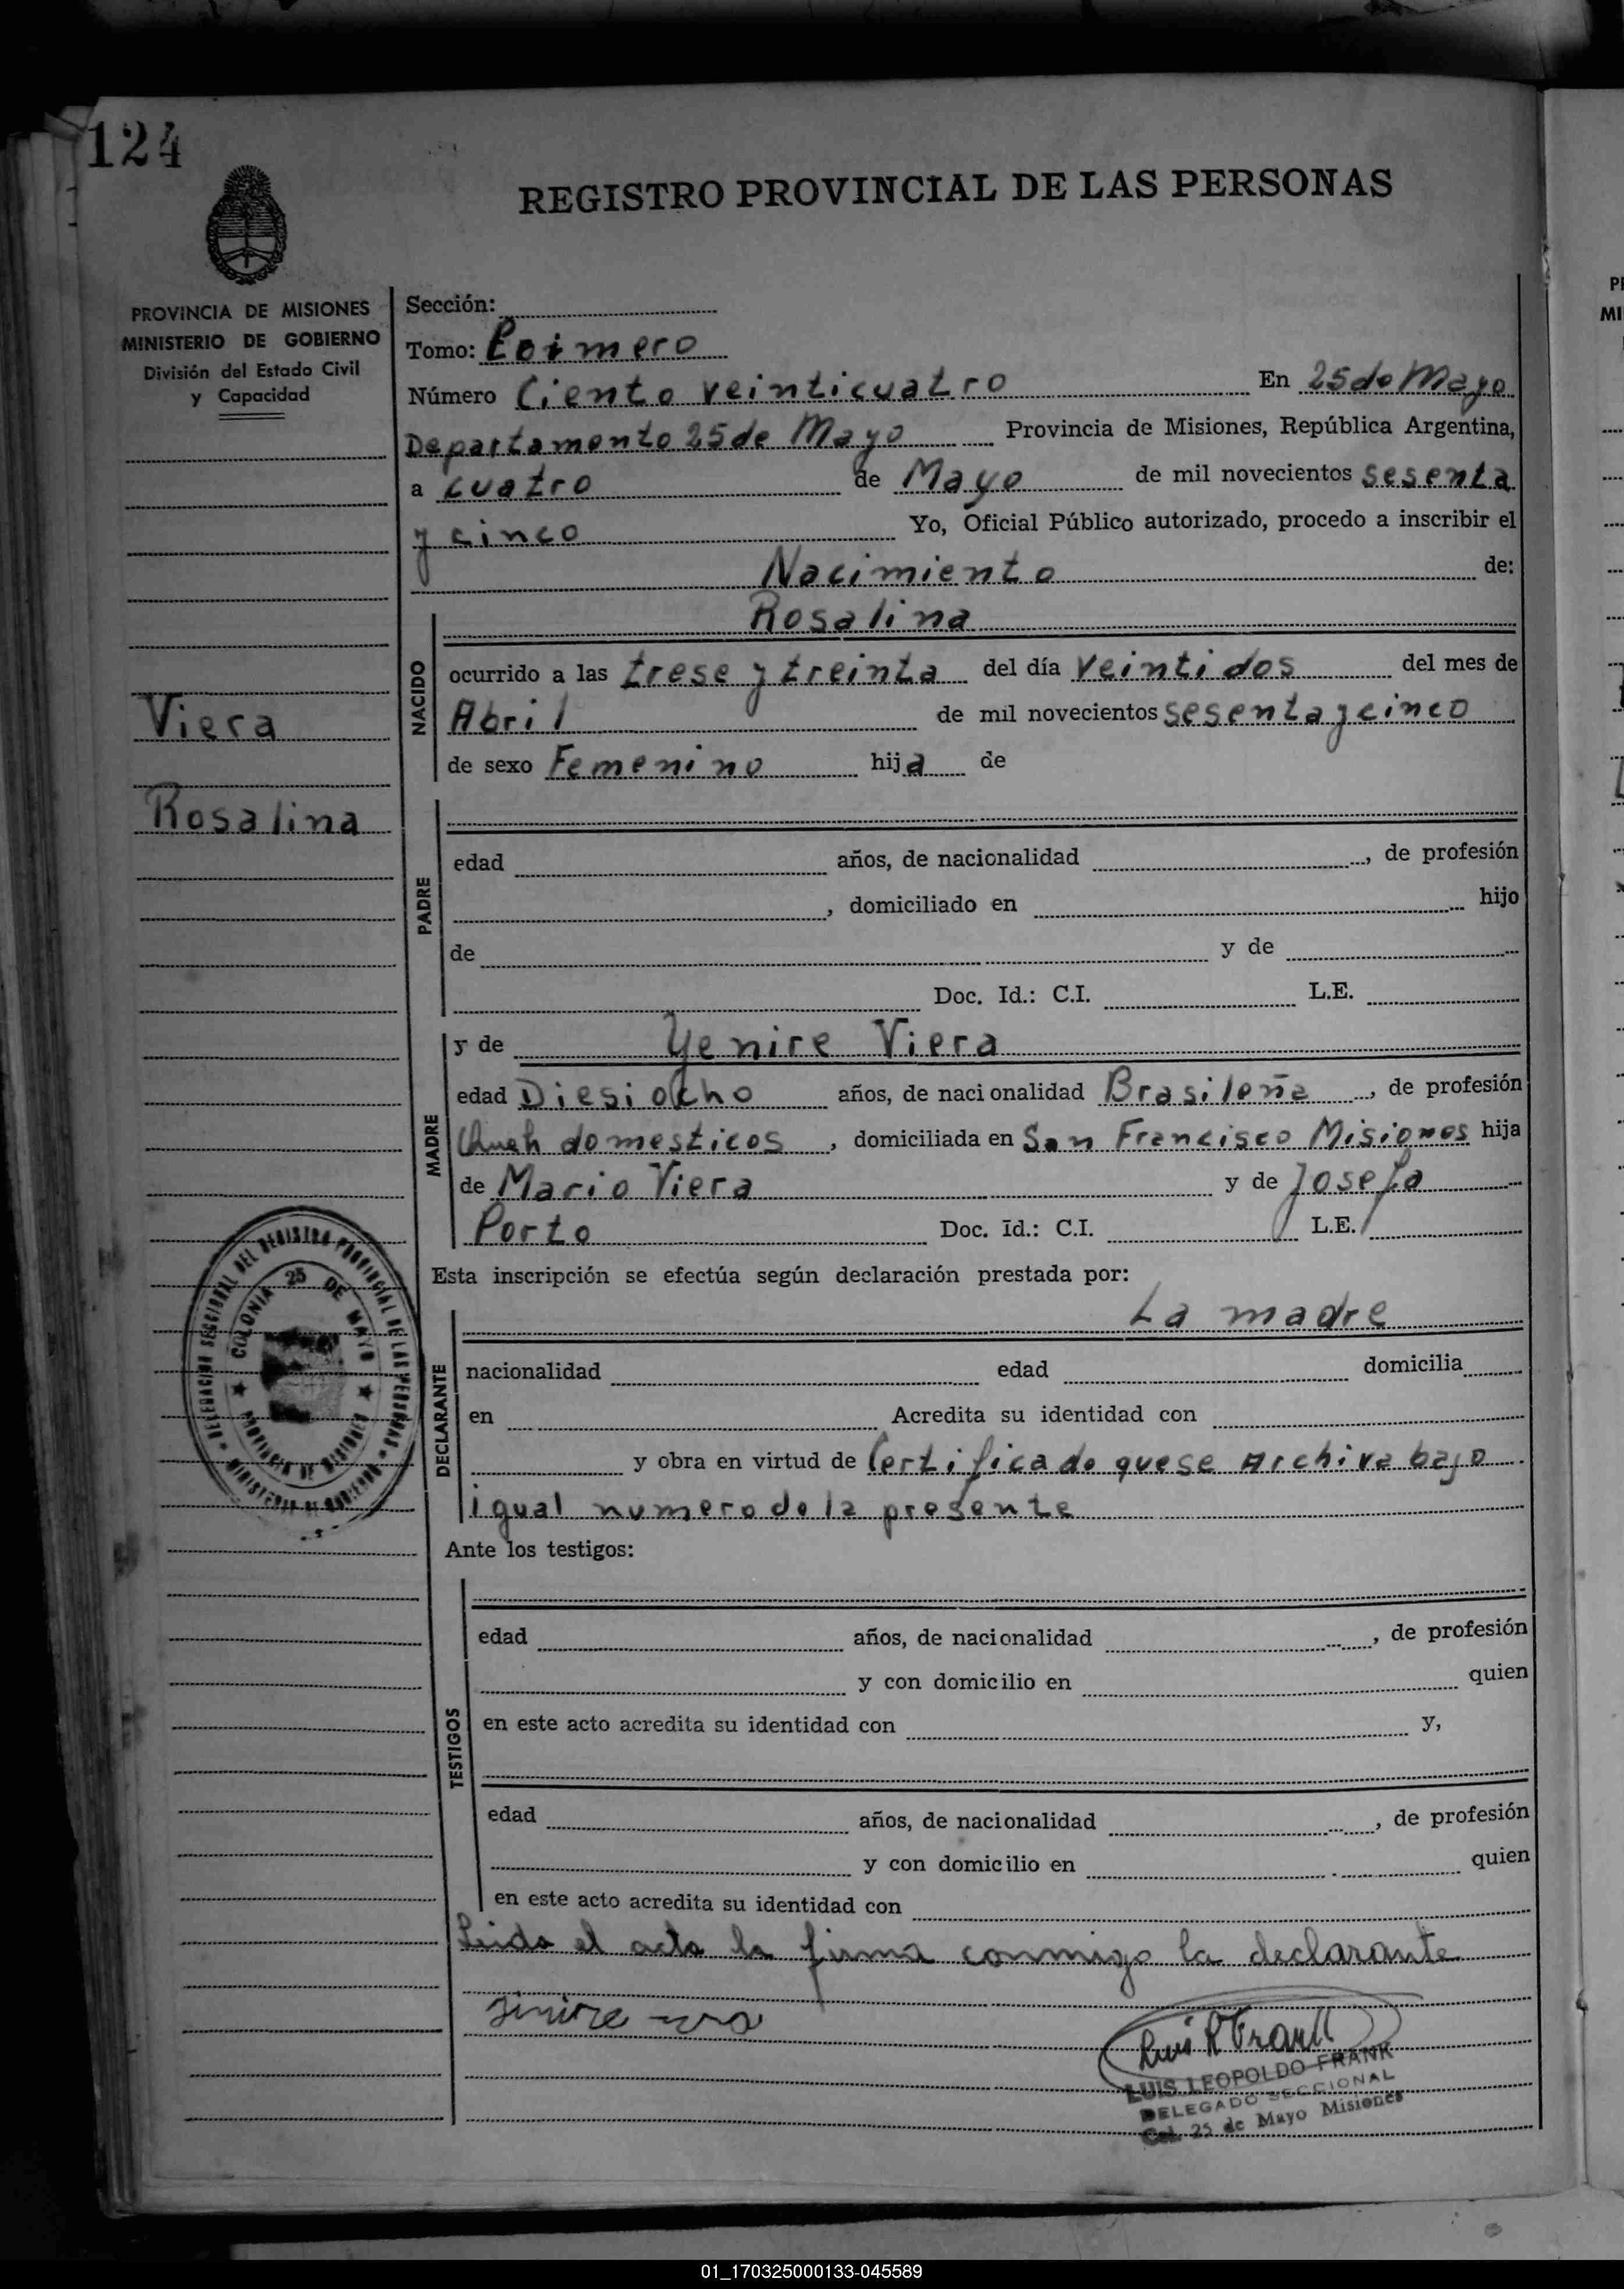 124
REGISTRO PROVINCIAL DE LAS PERSONAS
PROVINCIA DE MISIONES
MINISTERIO DE GOBIERNO
División del Estado Civil
y Capacidad
Viera
Rosalina
Sección:
Tomo: Primero
Número Ciento veinticuatro En 25 de Mayo
Departamento 25 de Mayo Provincia de Misiones, República Argentina,
a cuatro de Mayo de mil novecientos sesenta
y cinco Yo, Oficial Público autorizado, procedo a inscribir el
Nacimiento de:
NACIDO
Rosalina
ocurrido a las trese y treinta del día veintidos del mes de
Abril de mil novecientos sesenta y cinco
de sexo Femenino hija de
PADRE
edad años, de nacionalidad , de profesión
, domiciliado en hijo
de y de
Doc. Id.: C.I. L.E.
MADRE
y de Yenire Viera
edad Diesiocho años, de nacionalidad Brasileña , de profesión
domesticos , domiciliada en San Francisco Misiones hija
de Mario Viera y de Josefa
Porto Doc. Id.: C.I. L.E.
Esta inscripción se efectúa según declaración prestada por:
DECLARANTE
La madre
nacionalidad edad domicilia
en Acredita su identidad con
y obra en virtud de Certificado que se Archiva bajo
igual numero de la presente
DELEGACION SECCIONAL DEL REGISTRO PROVINCIAL DE LAS PERSONAS
MINISTERIO DE GOBIERNO
COLONIA 25 DE MAYO
PROVINCIA DE MISIONES
Ante los testigos:
TESTIGOS
edad años, de nacionalidad , de profesión
y con domicilio en quien
en este acto acredita su identidad con y,
edad años, de nacionalidad , de profesión
y con domicilio en quien
en este acto acredita su identidad con
Leida el acta la firma conmigo la declarante
Luis L Frank
LUIS LEOPOLDO FRANK
DELEGADO SECCIONAL
Col. 25 de Mayo Misiones
01_170325000133-045589